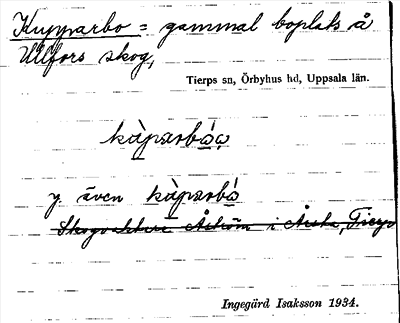 Kupparbo = gammal boplats å
Ullfors skog,
Tierps sn, Örbyhus hd, Uppsala län.
kàparbó̱ǫ
y. även kàparbó̱
Skogvaktare Åström i Årsta, Tierp
Ingegärd Isaksson 1934.